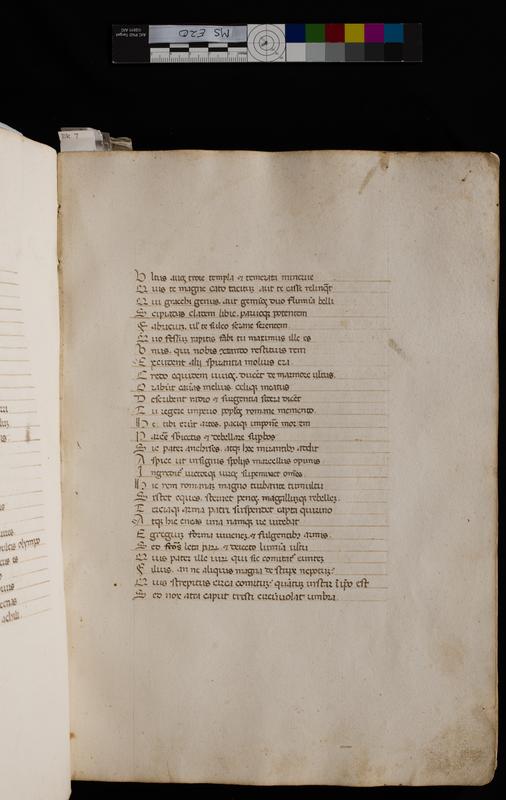 Vltus auos troie templa & temerata minerue
Quis te magne cato tacitū aut te cosse relinq̄t
Quis gracchi genus. aut gemīos duo fulmīa belli
Scipiadas cladem libie. paruoqꝫ potentem
Fabriciū. ul' te sulco serane serentem
Quo fessū rapitis fabi tu maximus ille es
Vnus. qui nobis cūctando restituis rem
Excudent alii spirantia molius era
Credo equidem viuos. ducēt de marmore vltus.
Orabūt causas melius. celiqꝫ meatus
Describent radio & surgentia sidera dicēt
Tu regere imperio poplos romane memento
Hec tibi erūt artes. paciqꝫ imponē morem
Parcē sbiectis & debellare supbos
Sic pater anchises. atqꝫ hec mirantibꝫ addit
Aspice ut insignis spolijs marcellus opimis
Ingreditur victorqꝫ viros supeminet omēs
Hic rem romanam magno turbante tumultu
Sistet eques. sternet penos. gallūqꝫ rebellem
Terciaqꝫ arma patri suspendet capta quirino
Atqꝫ hic eneas una namqꝫ ire uidebat
Egregiū forma iuuenem & fulgentibꝫ armis.
Sed frōs leta parū & deiecto lumīa vultu
Quis pater ille virū qui sic comitat' euntem
Filius. an ne aliquis magna de stirpe nepotū
Quis strepitus circa comitū. quātū instar ī ipō est
Sed nox atra caput tristi circūuolat umbra